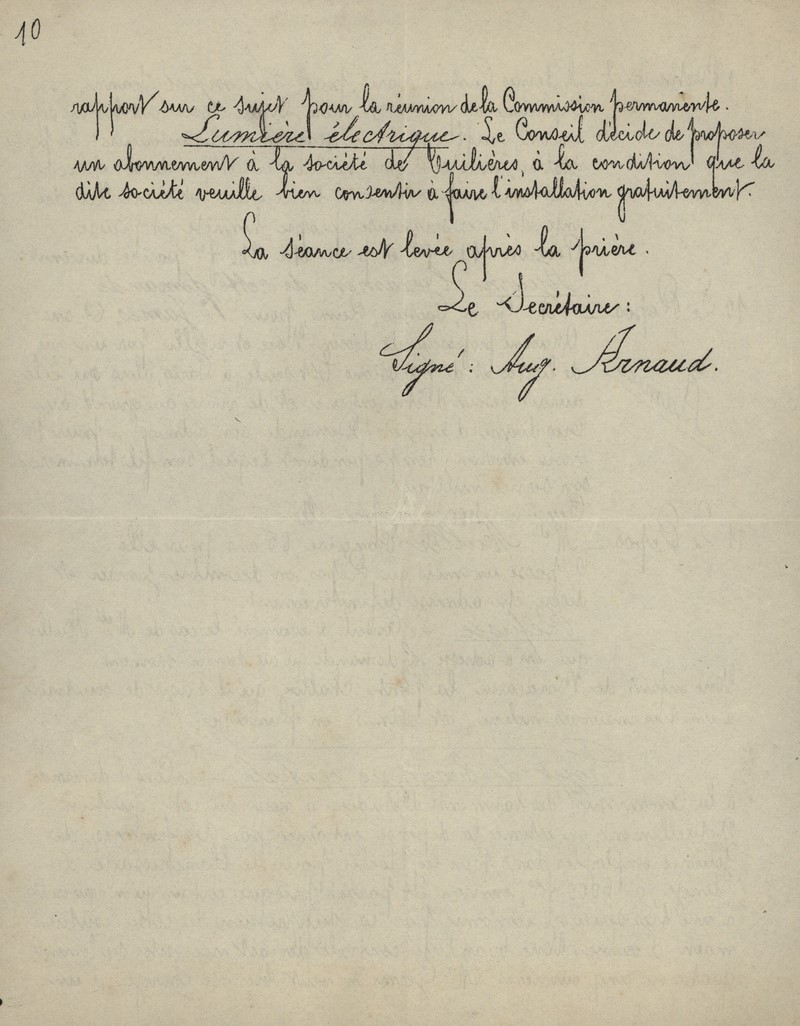 10
rapport sur ce sujet pour la réunion de la Commission permanente.
Lumière électrique. Le Conseil décide de proposer
un abonnement à la société de Tuilières, à la condition que la
dite société veuille bien consentir à faire l'installation gratuitement.
La séance est levée après la prière.
Le Secrétaire :
Signé : Aug. Arnaud.